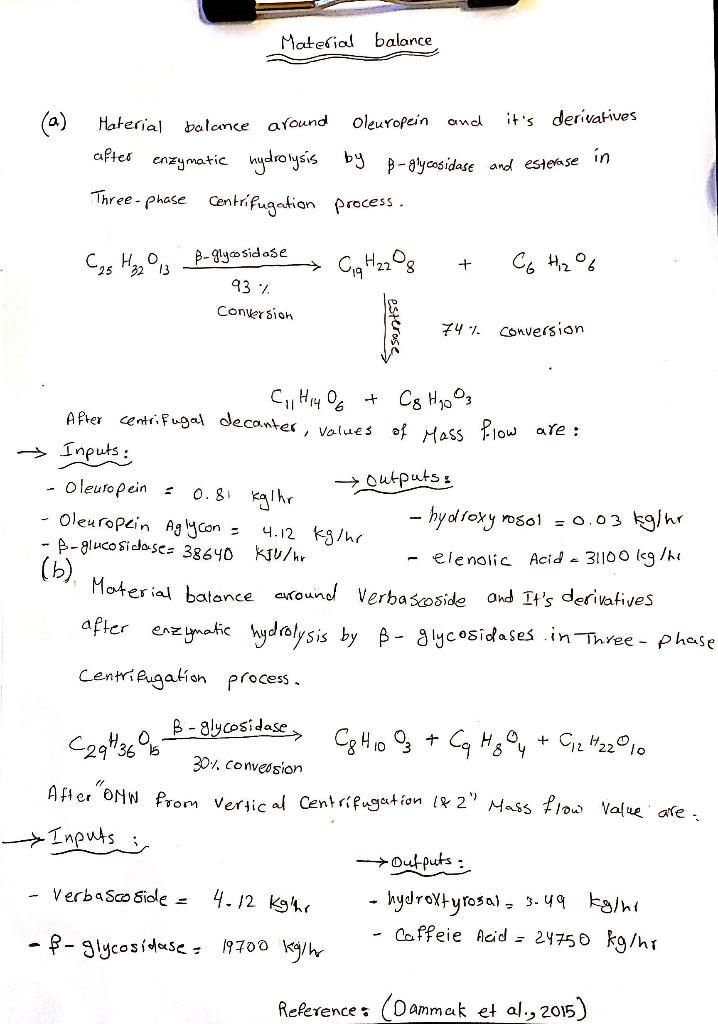 Material balance
(a) Material balance around Oleuropein and it's derivatives
after enzymatic hydrolysis by β-glycosidase and esterase in
Three-phase Centrifugation process.
C25 H32 O13 β-glycosidase → C19 H22 O8 + C6 H12 O6
93 %
Conversion
esterase
74 % conversion
C11 H14 O6 + C8 H10 O3
After centrifugal decanter, values of Mass flow are :
→ Inputs:
- Oleuropein = 0.81 kg/hr
- Oleuropein Aglycon = 4.12 kg/hr
- β-glucosidase= 38640 KJU/hr
→ outputs:
- hydroxy rosol = 0.03 kg/hr
- elenolic Acid = 31100 kg/hr
(b) Material balance around Verbascoside and It's derivatives
after enzymatic hydrolysis by β-glycosidases in Three-phase
Centrifugation process.
C29 H36 O15 β-glycosidase → C8 H10 O3 + C9 H8 O4 + C12 H22 O10
30% conversion
After "OMW from vertical Centrifugation 1&2" Mass flow Value are :
→ Inputs :
- Verbascoside = 4.12 kg/hr
- β-glycosidase = 19700 kg/hr
→ Outputs :
- hydroxtyrosal = 3.49 kg/hr
- Caffeie Acid = 24750 kg/hr
Reference: (Dammak et al., 2015)